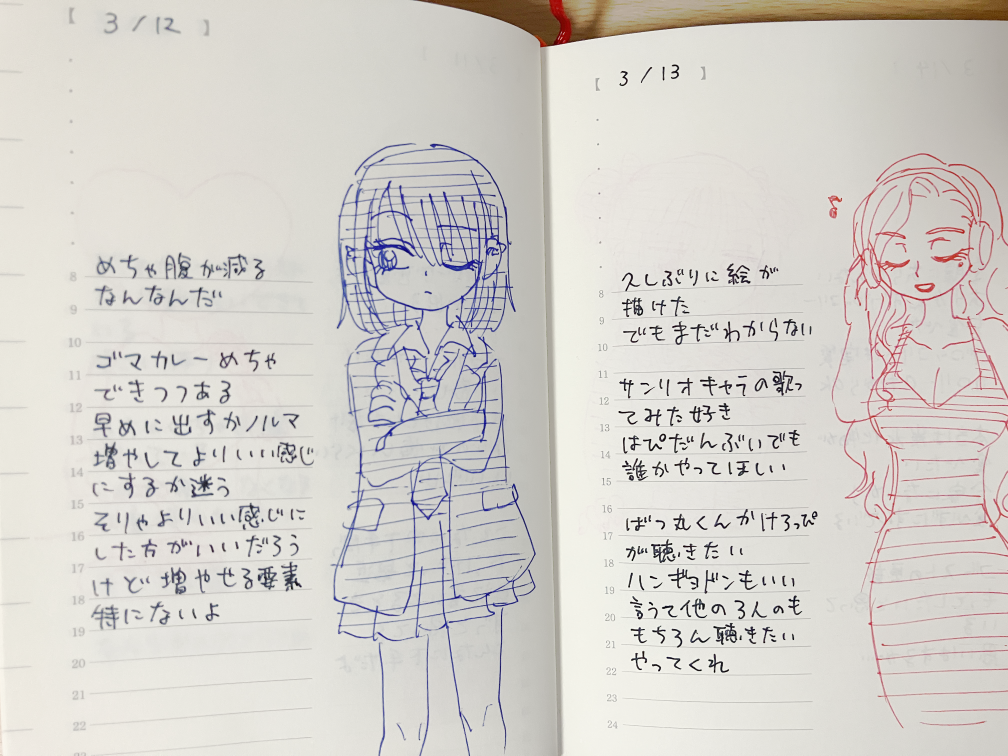 【 3/12 】
めちゃ腹が減る
なんなんだ
ゴマカレーめちゃ
できつつある
早めに出すかノルマ
増やしてよりいい感じ
にするか迷う
そりゃよりいい感じに
した方がいいだろう
けど増やせる要素
特にないよ
8
9
10
11
12
13
14
15
16
17
18
19
20
21
22
【 3/13 】
久しぶりに絵が
描けた
でもまだわからない
サンリオキャラの歌っ
てみた好き
はぴだんぶいでも
誰かやってほしい
ばつ丸くんかけろっぴ
が聴きたい
ハンギョドンもいい
言うて他の3人のも
もちろん聴きたい
やってくれ
8
9
10
11
12
13
14
15
16
17
18
19
20
21
22
23
24